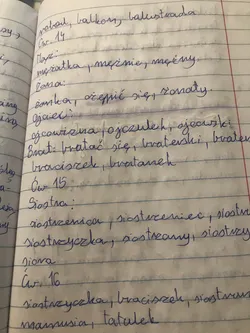 balkon, balustrada
Ćw. 14
Mąż:
mężatka, mężnie, mężny.
Żona:
żonka, ożenić się, żonaty.
Ojciec:
ojcowizna, ojczulek, ojcowski
Brat: bratać się, braterski, brater
braciszek, bratanek
Ćw. 15
Siostra:
siostrzenica, siostrzeniec, siostrz
siostrzyczka, siostrzany, siostrzy
siora
Ćw. 16
siostrzyczka, braciszek, siostrun
mamusia, tatulek